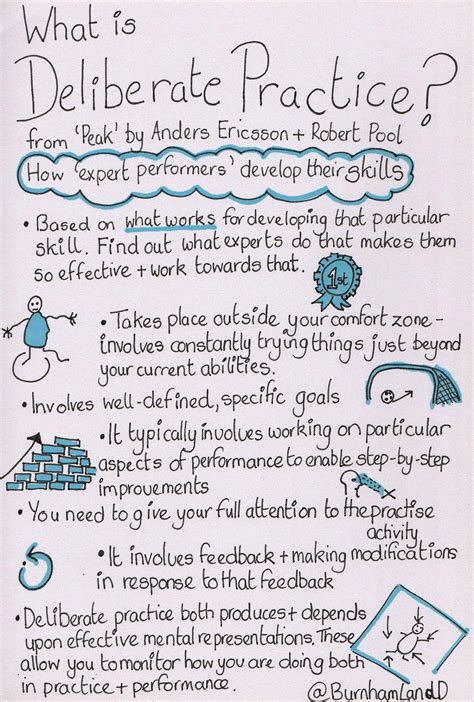 What is
Deliberate Practice?
from 'Peak' by Anders Ericsson + Robert Pool
How 'expert performers' develop their skills
• Based on what works for developing that particular
skill. Find out what experts do that makes them
so effective + work towards that.
1st
• Takes place outside your comfort zone -
involves constantly trying things just beyond
your current abilities.
• Involves well-defined, specific goals
• It typically involves working on particular
aspects of performance to enable step-by-step
improvements
• You need to give your full attention to the practise
activity
• It involves feedback + making modifications
in response to that feedback
• Deliberate practice both produces + depends
upon effective mental representations. These
allow you to monitor how you are doing both
in practice + performance.
@BurnhamLandD